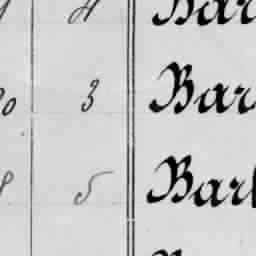 4 Bar
0 3 Bar
8 5 Bar